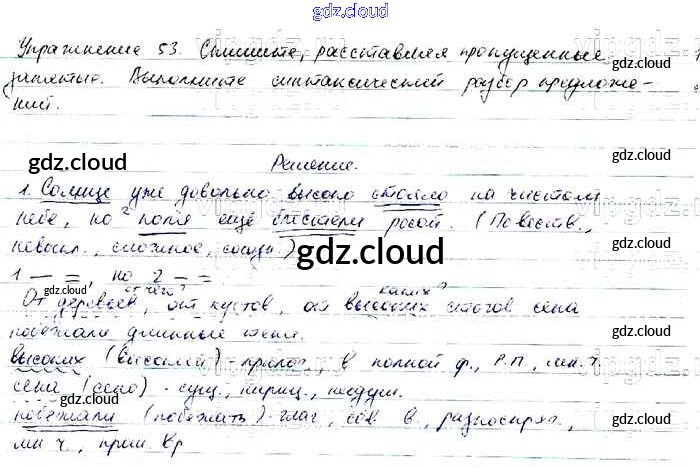 gdz.cloud
Упражнение 53. Спишите, расставляя пропущенные
запятые. Выполните синтаксический разбор предложе-
ний.
gdz.cloud
gdz.cloud
Решение.
gdz.cloud
1. Солнце уже довольно высоко стояло на чистом
небе, но 2 поля ещё блестели росой. (Повеств.,
gdz.cloud
невоскл., сложное, союзн.)
gdz.cloud
1 — =, но 2 — =
gdz.cloud
от чего?
gdz.cloud
каких?
От деревьев, от кустов, от высоких стогов сена
побежали длинные тени.
gdz.cloud
высоких (высокий) - прилаг., в полной ф., Р.П., мн. ч.
gdz.cloud
gdz.cloud
сена (сено) - сущ., нариц., неодуш.
gdz.cloud
побежали (побежать) - глаг., сов. в., разноспряг.,
gdz.cloud
gdz.cloud
мн. ч., прош. вр